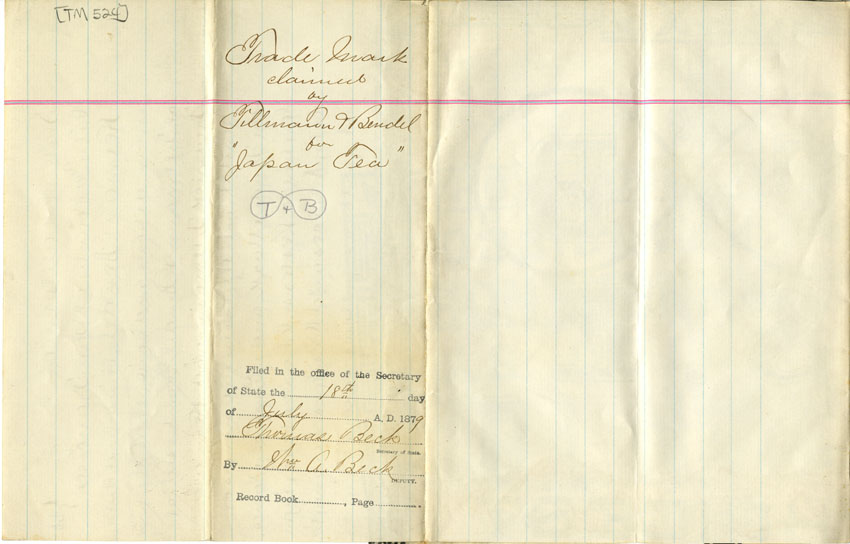 [TM 524]
Trade Mark
claimed
by
Tillmann & Bendel
for
"Japan Tea"
T & B
Filed in the office of the Secretary
of State the 18th day
of July A. D. 1879
Thomas Beck
Secretary of State.
By Wm A. Beck
DEPUTY.
Record Book, Page